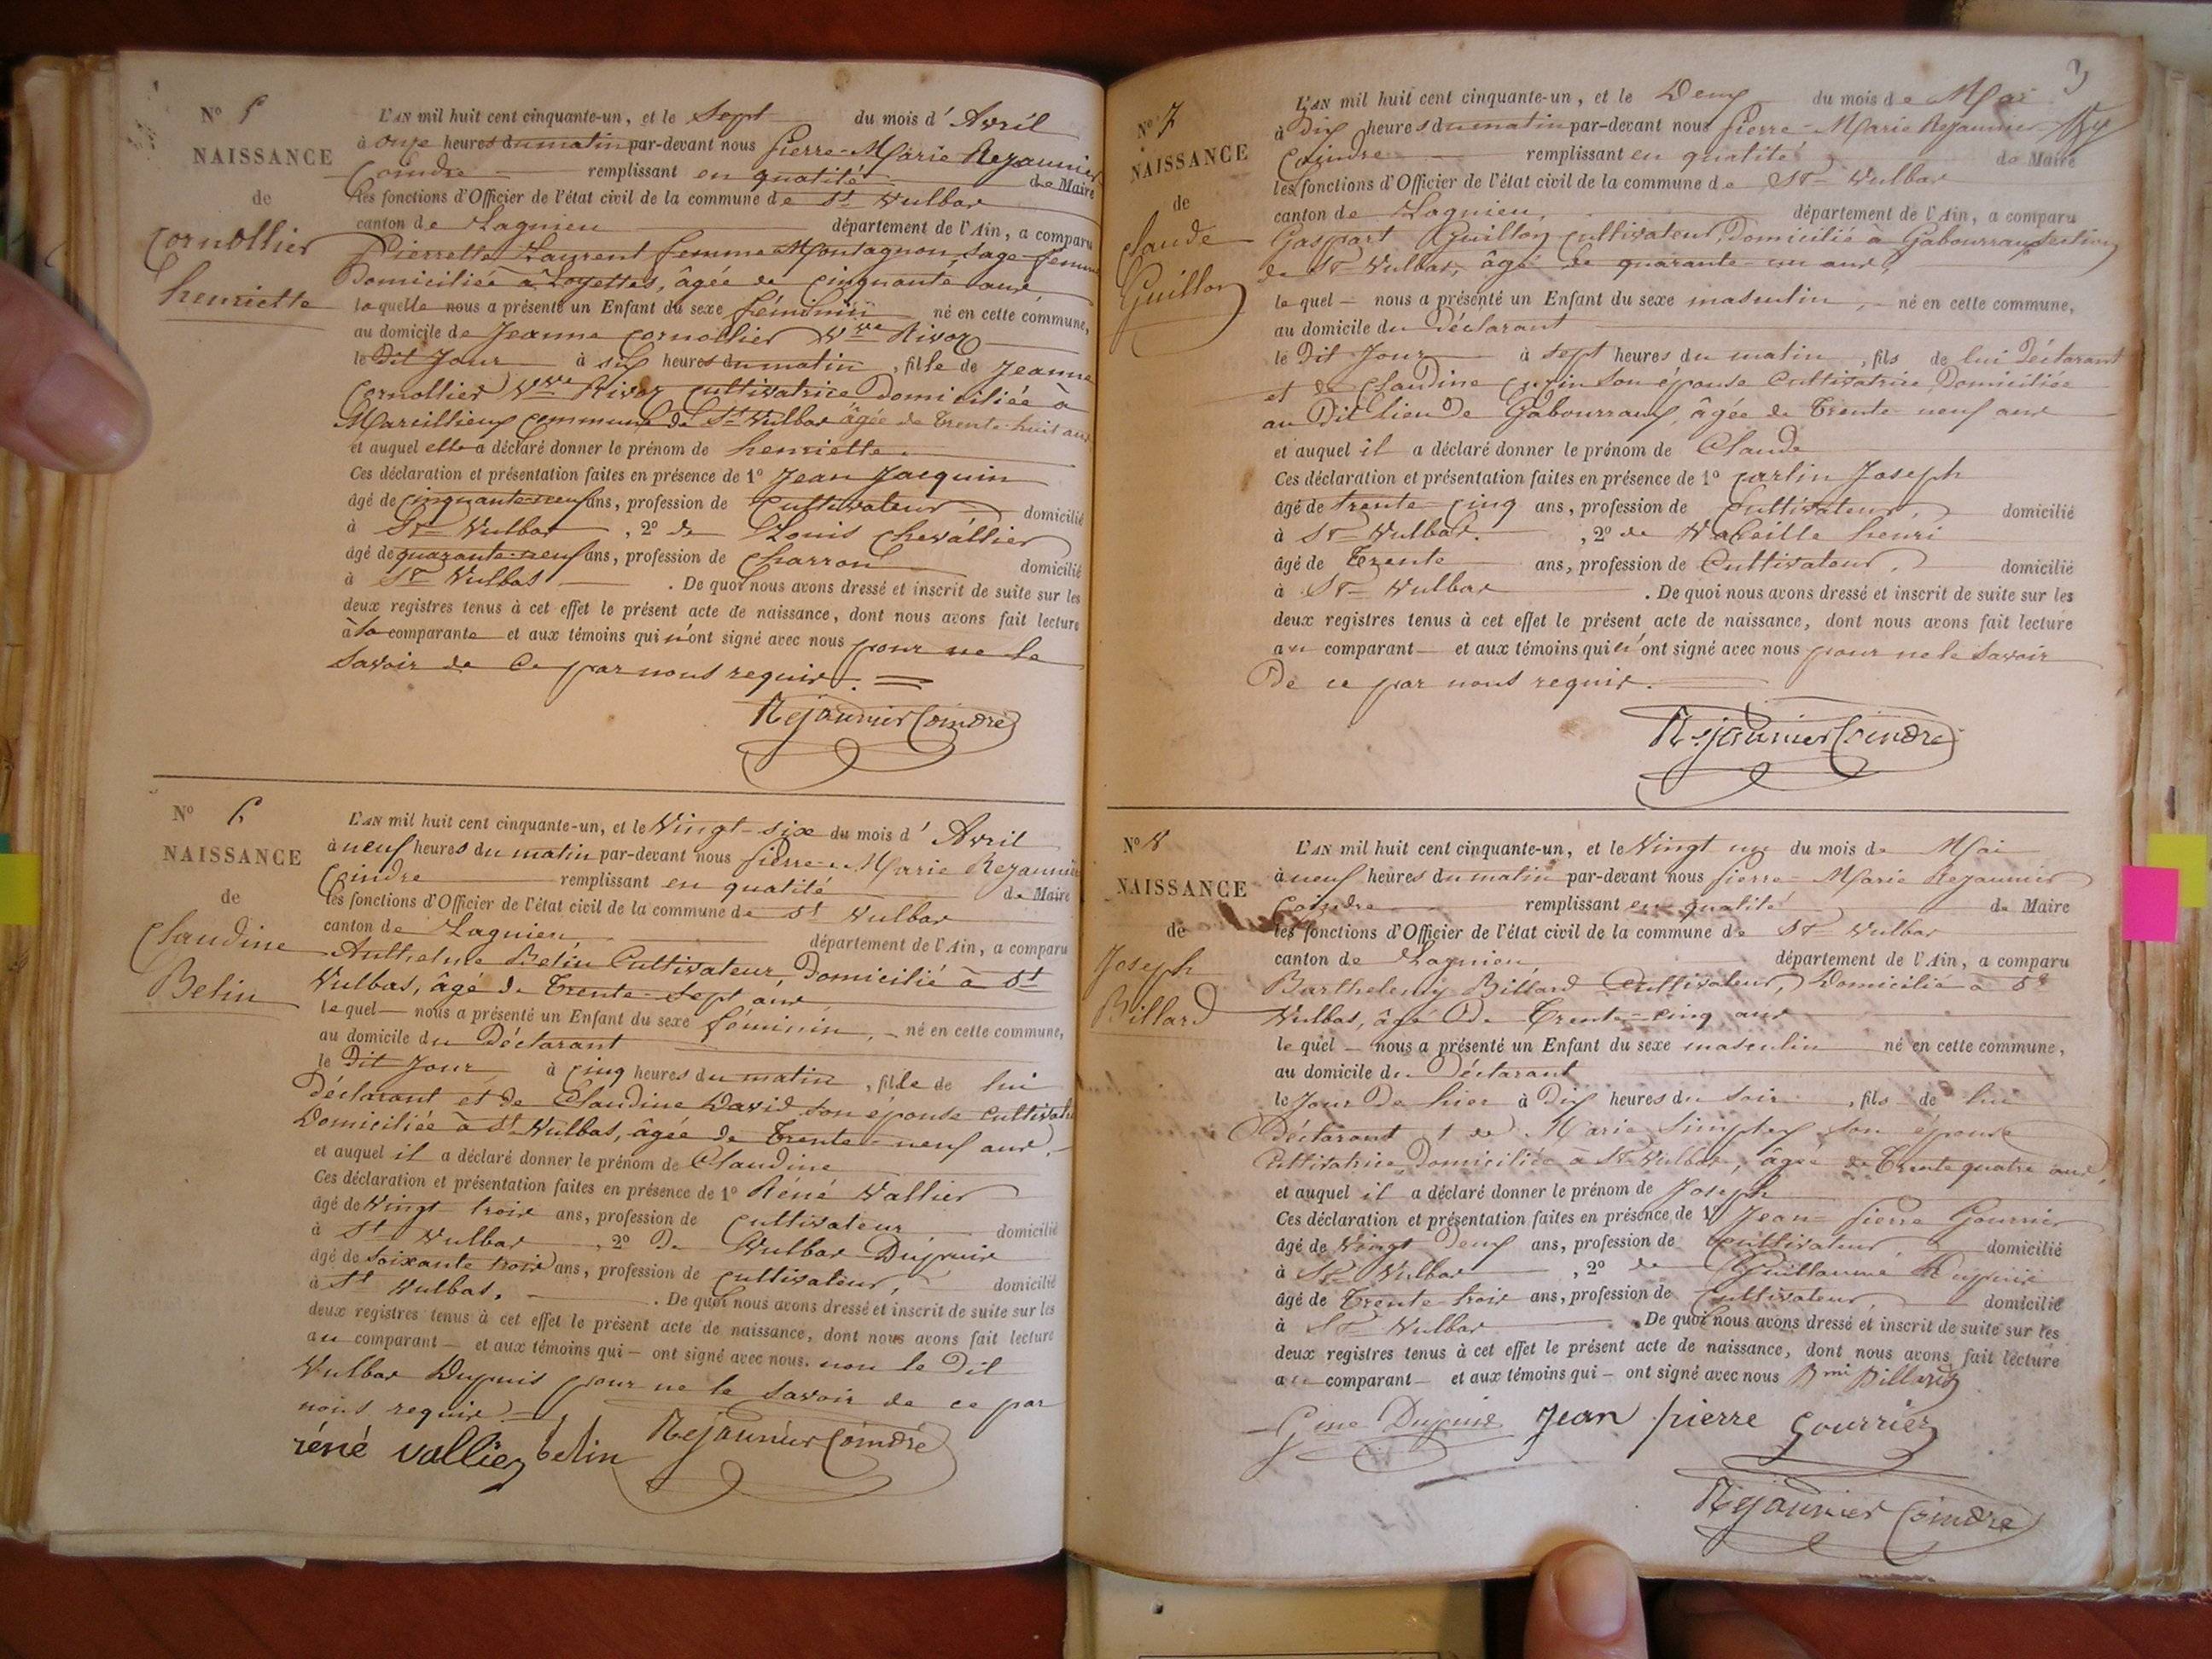 N° 5
NAISSANCE
de
Cornollier
henriette
L'AN mil huit cent cinquante-un, et le Sept du mois d' Avril
à onze heures du matin par-devant nous Pierre-Marie Rejaunier
Coindre remplissant en qualité de Maire
les fonctions d'Officier de l'état civil de la commune de St Vulbas
canton de Lagnieu département de l'Ain, a comparu
Pierrette Laurent femme Montagnon, sage-femme
Domiciliée à Loyettes, âgée de cinquante ans,
laquelle nous a présenté un Enfant du sexe féminin né en cette commune,
au domicile de Jeanne Cornollier Vve Rivoz
le Dit Jour à six heures du matin, fille de Jeanne
Cornollier Vve Rivoz cultivatrice Domiciliée à
Mareillieux commune de St Vulbas âgée de Trente-huit ans
et auquel elle a déclaré donner le prénom de henriette.
Ces déclaration et présentation faites en présence de 1° Jean Jacquin
âgé de cinquante-neuf ans, profession de Cultivateur domicilié
à St Vulbas, 2° de Louis Chevallier
âgé de quarante-neuf ans, profession de Charron domicilié
à St Vulbas. De quoi nous avons dressé et inscrit de suite sur les
deux registres tenus à cet effet le présent acte de naissance, dont nous avons fait lecture
à la comparante et aux témoins qui n'ont signé avec nous pour ne le
Savoir de ce par nous requis.
Rejaunier Coindre
N° 6
NAISSANCE
de
Claudine
Belin
L'AN mil huit cent cinquante-un, et le Vingt-six du mois d' Avril
à neuf heures du matin par-devant nous Pierre-Marie Rejaunier
Coindre remplissant en qualité de Maire
les fonctions d'Officier de l'état civil de la commune de St Vulbas
canton de Lagnieu département de l'Ain, a comparu
Anthelme Belin Cultivateur, Domicilié à St
Vulbas, âgé de Trente-Sept ans
lequel nous a présenté un Enfant du sexe féminin, né en cette commune,
au domicile du Déclarant
le Dit Jour à cinq heures du matin, fille de lui
Déclarant et de Claudine David son épouse Cultivatrice
Domiciliée à St Vulbas, âgée de Trente-neuf ans.
et auquel il a déclaré donner le prénom de Claudine
Ces déclaration et présentation faites en présence de 1° Réné Vallier
âgé de Vingt trois ans, profession de Cultivateur domicilié
à St Vulbas, 2° de Vulbas Dupuis
âgé de Soixante trois ans, profession de Cultivateur, domicilié
à St Vulbas. De quoi nous avons dressé et inscrit de suite sur les
deux registres tenus à cet effet le présent acte de naissance, dont nous avons fait lecture
au comparant et aux témoins qui ont signé avec nous. non le Dit
Vulbas Dupuis pour ne le Savoir de ce par
nous requis.
réné vallier belin Rejaunier Coindre
3
N° 7
NAISSANCE
de
Claude
Guillon
L'AN mil huit cent cinquante-un, et le Deux du mois de Mai
à Dix heures du matin par-devant nous Pierre-Marie Rejaunier
Coindre remplissant en qualité de Maire
les fonctions d'Officier de l'état civil de la commune de St Vulbas
canton de Lagnieu, département de l'Ain, a comparu
Gaspart Guillon cultivateur, Domicilié à Gabourraux section
de St Vulbas, âgé de quarante-un ans,
lequel nous a présenté un Enfant du sexe masculin, né en cette commune,
au domicile du Déclarant
le Dit Jour à sept heures du matin, fils de lui Déclarant
et de Claudine son épouse Cultivatrice, Domiciliée
au Dit lieu De Gabourraux, âgée de Trente-neuf ans
et auquel il a déclaré donner le prénom de Claude
Ces déclaration et présentation faites en présence de 1° Carlin Joseph
âgé de trente-cinq ans, profession de Cultivateur, domicilié
à St Vulbas, 2° de henri
âgé de Trente ans, profession de Cultivateur, domicilié
à St Vulbas. De quoi nous avons dressé et inscrit de suite sur les
deux registres tenus à cet effet le présent acte de naissance, dont nous avons fait lecture
au comparant et aux témoins qui n'ont signé avec nous pour ne le Savoir
De ce par nous requis.
Rejaunier Coindre
N° 8
NAISSANCE
de
Joseph
Billard
L'AN mil huit cent cinquante-un, et le Vingt un du mois de Mai
à neuf heures du matin par-devant nous Pierre-Marie Rejaunier
Coindre remplissant en qualité de Maire
les fonctions d'Officier de l'état civil de la commune de St Vulbas
canton de Lagnieu département de l'Ain, a comparu
Barthelemy Billard Cultivateur, Domicilié à St
Vulbas, âgé De Trente-cinq ans
lequel nous a présenté un Enfant du sexe masculin né en cette commune,
au domicile du Déclarant
le Jour De hier à Dix heures du Soir, fils de lui
Déclarant & de Marie Simplex son épouse
Cultivatrice Domiciliée à St Vulbas, âgée de Trente quatre ans,
et auquel il a déclaré donner le prénom de Joseph
Ces déclaration et présentation faites en présence de 1° Jean-Pierre Gourrier
âgé de Vingt Deux ans, profession de Cultivateur, domicilié
à St Vulbas, 2° de Guillaume Dupuis
âgé de Trente-trois ans, profession de Cultivateur, domicilié
à St Vulbas. De quoi nous avons dressé et inscrit de suite sur les
deux registres tenus à cet effet le présent acte de naissance, dont nous avons fait lecture
au comparant et aux témoins qui ont signé avec nous Bmi Billard
Gme Dupuis Jean pierre Gourrier
Rejaunier Coindre